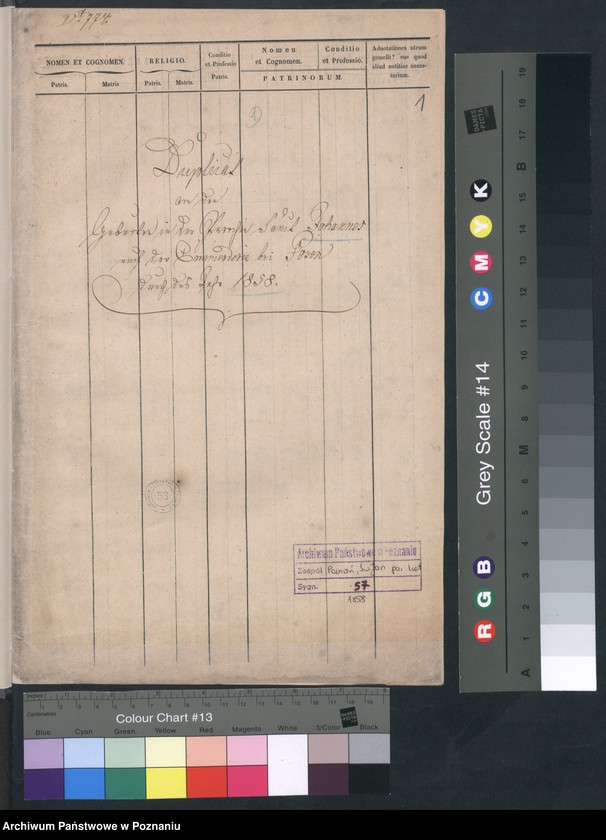 Nº 774.
NOMEN ET COGNOMEN.
Patris.
Matris
RELIGIO.
Patris.
Matris.
Conditio
et Professio
Patris.
Nomen
et Cognomen.
Conditio
et Professio.
PATRINORUM.
Adnotationes utrum
gemelli? sue quod
aliud notitiae neces-
sarium.
1
Duplicat
von den
Geburten in der Parochie Sanct Johannes
auf der Commenderie bei Posen
durch das Jahr 1858.
53
Archiwum Państwowe w Poznaniu
Zespół Poznań, Św. Jan par. kat
Sygn. 57
1858
Inches
Centimetres
Colour Chart #13
DANES
PICTA
Blue Cyan Green Yellow Red Magenta White 3/Color Black
Grey Scale #14
DANES
PICTA
R G B C M Y K
A 1 2 3 4 5 6 M 8 9 10 11 12 13 14 15 B 17 18 19
Archiwum Państwowe w Poznaniu